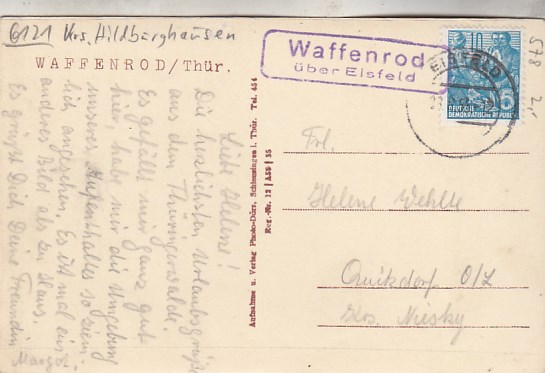 6121 Krs. Hildburghausen
WAFFENROD/Thür.
Waffenrod
über Eisfeld
EISFELD
DEUTSCHE
DEMOKRATISCHE REPUBLIK
5
578
Liebe Helene!
Die herzlichsten Urlaubsgrüße
aus dem Thüringerwalde.
Es gefällt mir ganz gut
hier, habe mir die Umgebung
unseres Aufenthaltes so ziem-
lich angesehen. Es ist mal ein
anderes Bild als zu Haus.
Es grüßt Dich Deine Freundin
Aufnahme u. Verlag Photo-Dörr, Schleusingen i. Thür. Tel. 454
Reg.-Nr. 12 | A59 | 55
Frl.
Helene Wehlte
Quitzdorf O/L
Krs. Niesky